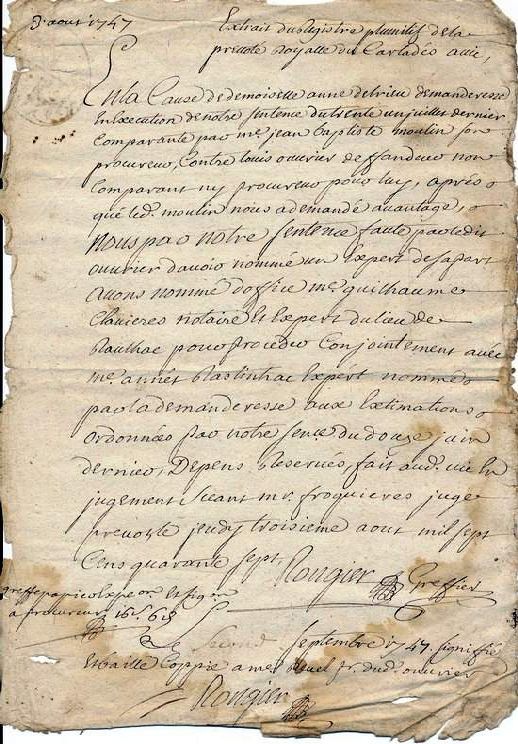 3e aout 1747
Extrait du Registre plumitif de la
prevoté Royalle du Carladés a vic,
En la Cause de demoiselle anne delrieu demanderesse
En Execution de notre sentence du trente un juillet dernier
Comparante par me. jean Baptiste moulin son
procureur, Contre louis ouvrier deffandeur non
Comparant ny procureur pour luy, aprés
que led. moulin nous a demandé avantage,
Nous par notre sentence faute par ledit
ouvrier d'avoir nommé un Expert de sa part
avons nommé d'office me. guilhaume
Clavieres notaire et Expert du lieu de
pour proceder Conjointement avec
me. annet Rastinhac Expert nommé
par la demanderesse aux Extimations
ordonnées par notre sence. du douze juin
dernier, Depens Reservés, fait aud. vic En
jugement seant mr. froquieres juge
prevost le jeudy troisieme aout mil sept
Cens quarante sept
Rougier Greffier
greffe papier Et
a procureur 15s. 6d
Le Second septembre 1747. signiffié
Et baillé Coppie a me. pr. dud. ouvrier
Rougier